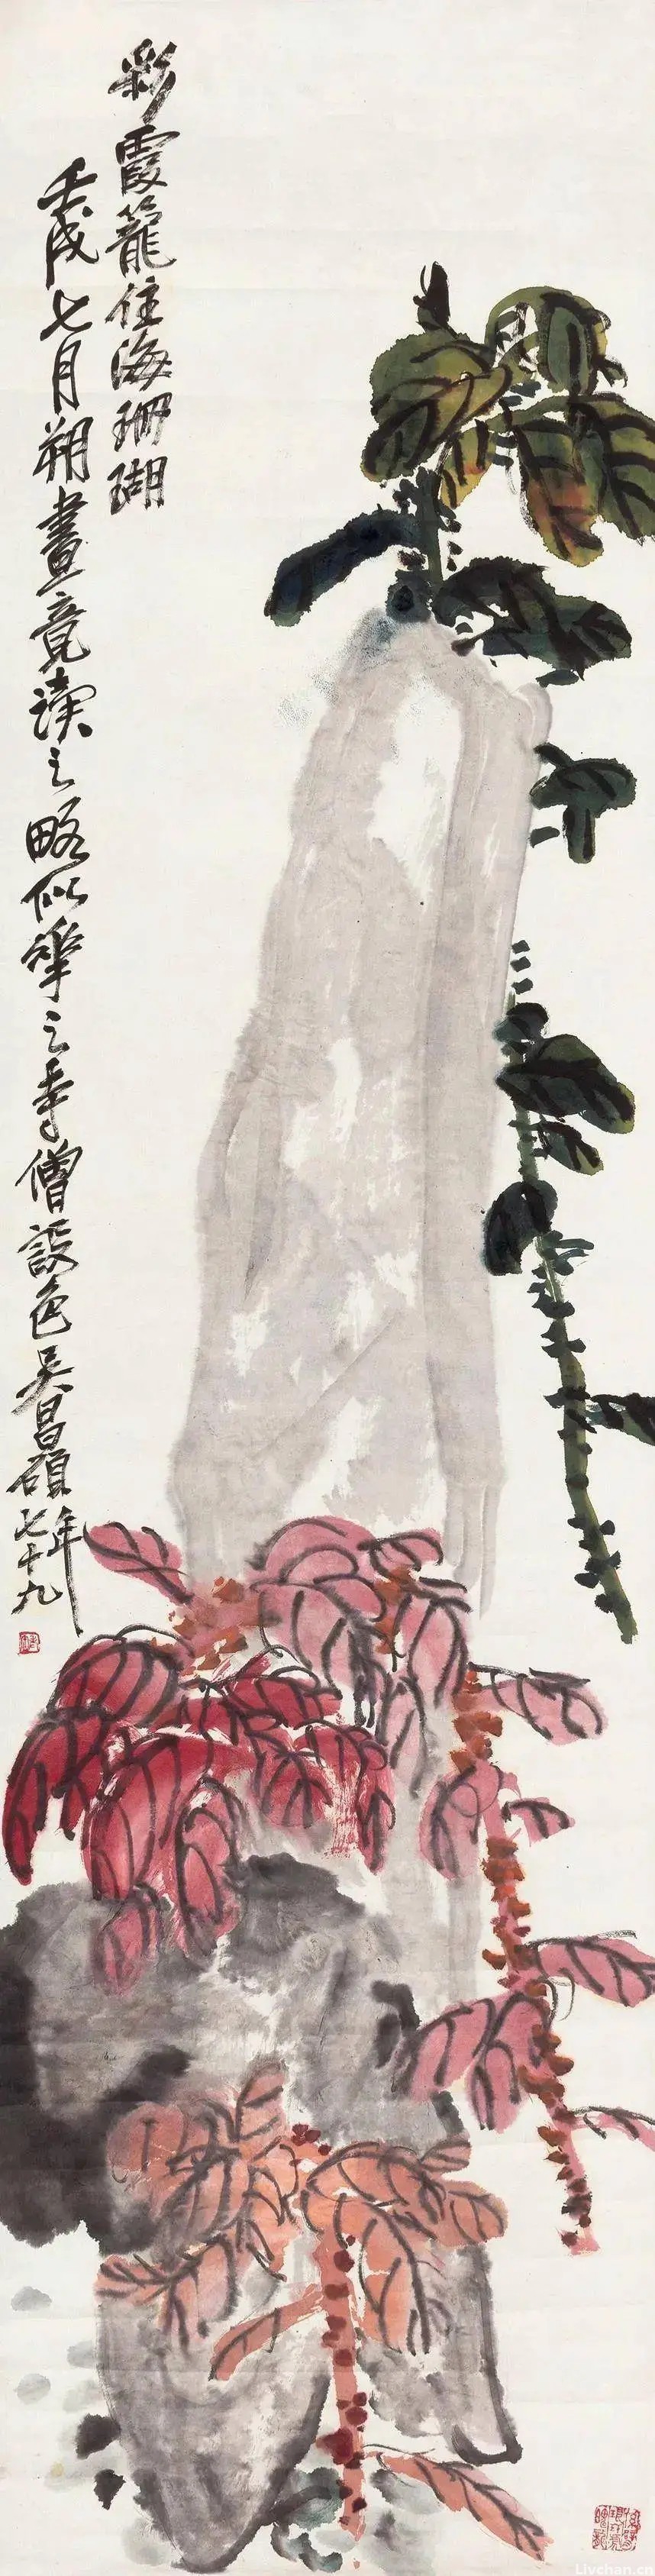 彩霞籠住海珊瑚
壬戌七月朔畫竟讀之略似華之寺僧設色吳昌碩年
七十九
Livchan.cn